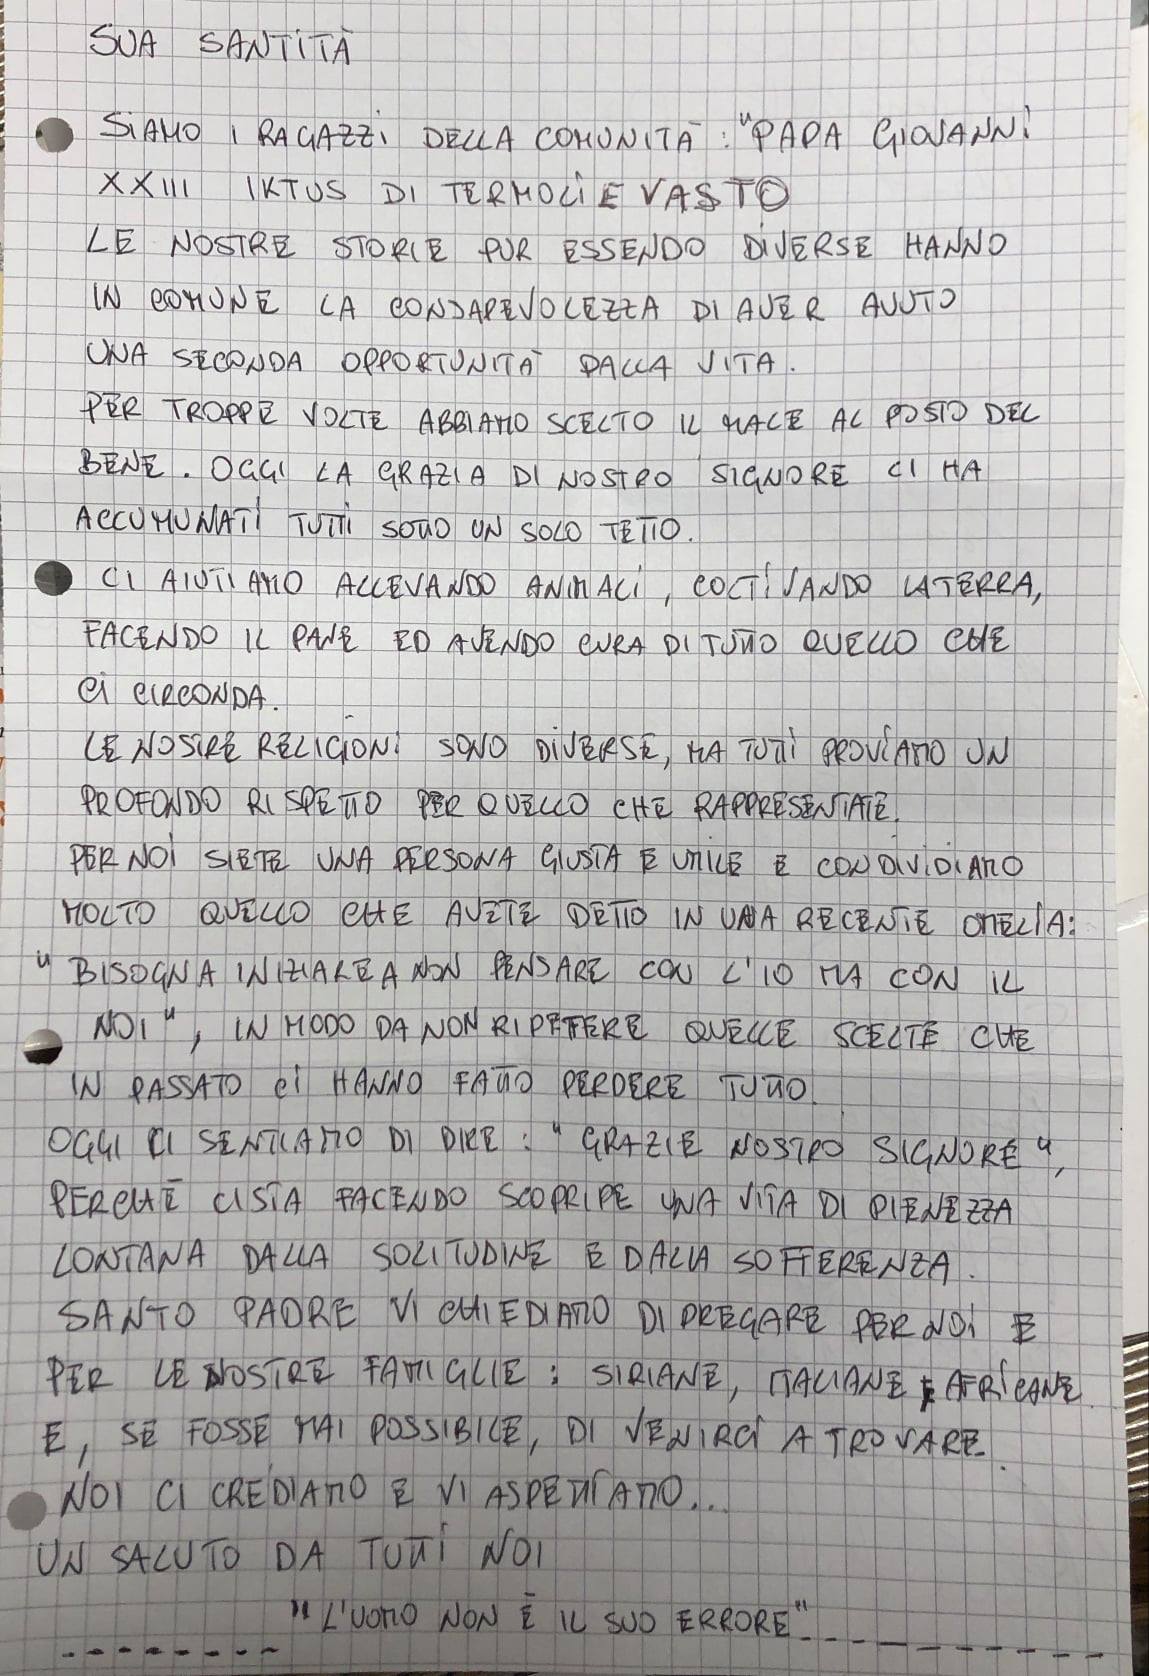 SUA SANTITÀ
SIAMO I RAGAZZI DELLA COMUNITÀ : "PAPA GIOVANNI
XXIII IKTUS DI TERMOLI E VASTO
LE NOSTRE STORIE PUR ESSENDO DIVERSE HANNO
IN COMUNE LA CONSAPEVOLEZZA DI AVER AVUTO
UNA SECONDA OPPORTUNITÀ DALLA VITA.
PER TROPPE VOLTE ABBIAMO SCELTO IL MALE AL POSTO DEL
BENE. OGGI LA GRAZIA DI NOSTRO SIGNORE CI HA
ACCUMUNATI TUTTI SOTTO UN SOLO TETTO.
CI AIUTIAMO ALLEVANDO ANIMALI, COLTIVANDO LA TERRA,
FACENDO IL PANE ED AVENDO CURA DI TUTTO QUELLO CHE
CI CIRCONDA.
LE NOSTRE RELIGIONI SONO DIVERSE, MA TUTTI PROVIAMO UN
PROFONDO RISPETTO PER QUELLO CHE RAPPRESENTATE.
PER NOI SIETE UNA PERSONA GIUSTA E UMILE E CONDIVIDIAMO
MOLTO QUELLO CHE AVETE DETTO IN UNA RECENTE OMELIA:
"BISOGNA INIZIARE A NON PENSARE CON L'IO MA CON IL
NOI", IN MODO DA NON RIPETERE QUELLE SCELTE CHE
IN PASSATO CI HANNO FATTO PERDERE TUTTO.
OGGI CI SENTIAMO DI DIRE : "GRAZIE NOSTRO SIGNORE",
PERCHÉ CI STA FACENDO SCOPRIRE UNA VITA DI PIENEZZA
LONTANA DALLA SOLITUDINE E DALLA SOFFERENZA.
SANTO PADRE VI CHIEDIAMO DI PREGARE PER NOI E
PER LE NOSTRE FAMIGLIE : SIRIANE, ITALIANE E AFRICANE
E, SE FOSSE MAI POSSIBILE, DI VENIRCI A TROVARE.
NOI CI CREDIAMO E VI ASPETTIAMO...
UN SALUTO DA TUTTI NOI
"L'UOMO NON È IL SUO ERRORE"